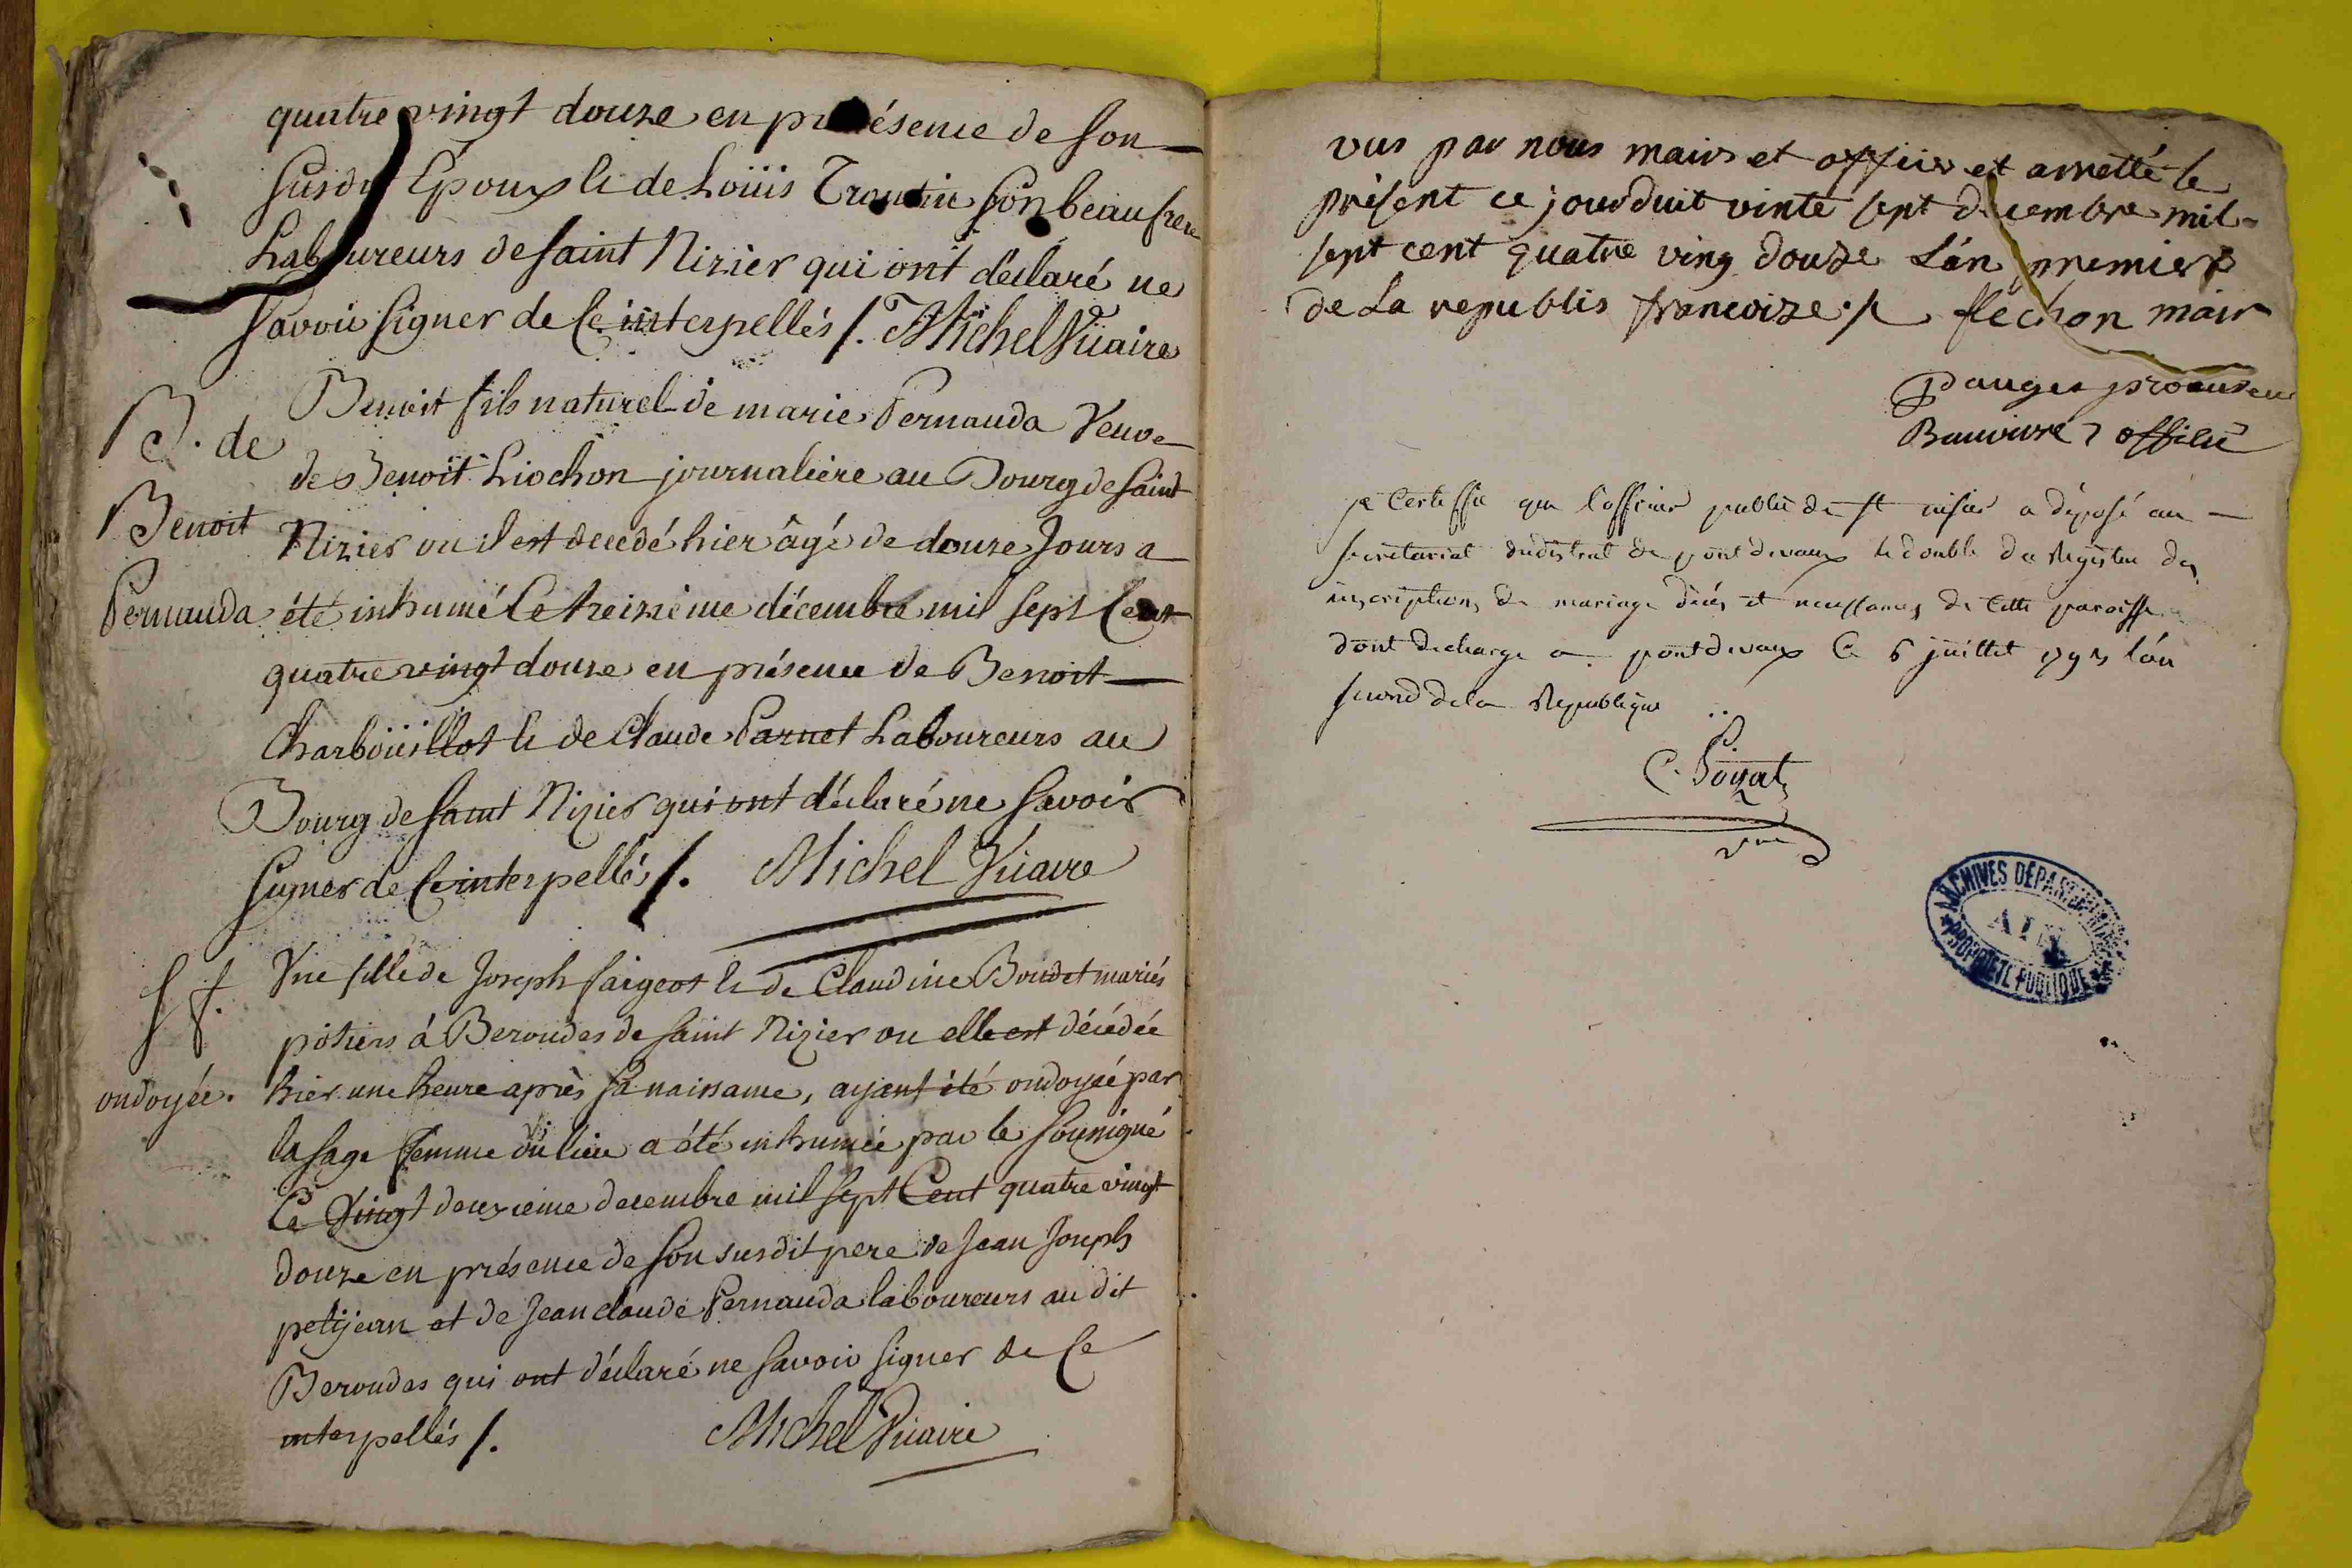 quatre vingt douze en présence de son
susdit Epoux & de Loüis Trontin son beaufrere
Laboureurs de saint Nizier qui ont déclaré ne
savoir signer de ce interpellés /. Michel Vicaire
B. de
Benoit
Pernauda
Benoit fils naturel de marie Pernauda Veuve
de Benoit Liochon journaliere au Bourg de saint
Nizier ou il est decedé hier âgé de douze Jours a
été inhumé Ce treizième décembre mil sept Cent
quatre vingt douze en présence de Benoit
Charboüillot & de Claude Parnet Laboureurs au
Bourg de saint Nizier qui ont déclaré ne savoir
signer de Ce interpellés /. Michel Vicaire
ondoyée.
Une fille de Joseph fargeot & de Claudine Boudet mariés
potiers à Beroudes de saint Nizier ou elle est décédée
hier une heure après sa naissance, ayant été ondoyée par
la sage femme du lieu a été inhumée par le soussigné
Ce Vingt deuxieme decembre mil sept Cent quatre vingt
douze en présence de son susdit pere de Jean Joseph
petijean et de Jean claude Pernauda laboureurs au dit
Beroudes qui ont déclaré ne savoir signer de Ce
interpellés /. Michel Vicaire
vus par nous mairs et officier et arretté le
présent ce jourduit vinte sept decembre mil
sept cent quatre ving douze L'an premier
de La republis francoize ./. flechon mair
pauget procureur
Bauvivre officié
je Certiffie que l'officier public de st nisier a déposé au
secretariat du district de pont devaux le double du Registre des
inscriptions de mariage décés et naissances de Cette paroisse
dont decharge a pont devaux Ce 6 juillet 1793 l'an
second de la Republique
ARCHIVES DÉPARTEMENTALES
AIN
PROPRIÉTÉ PUBLIQUE